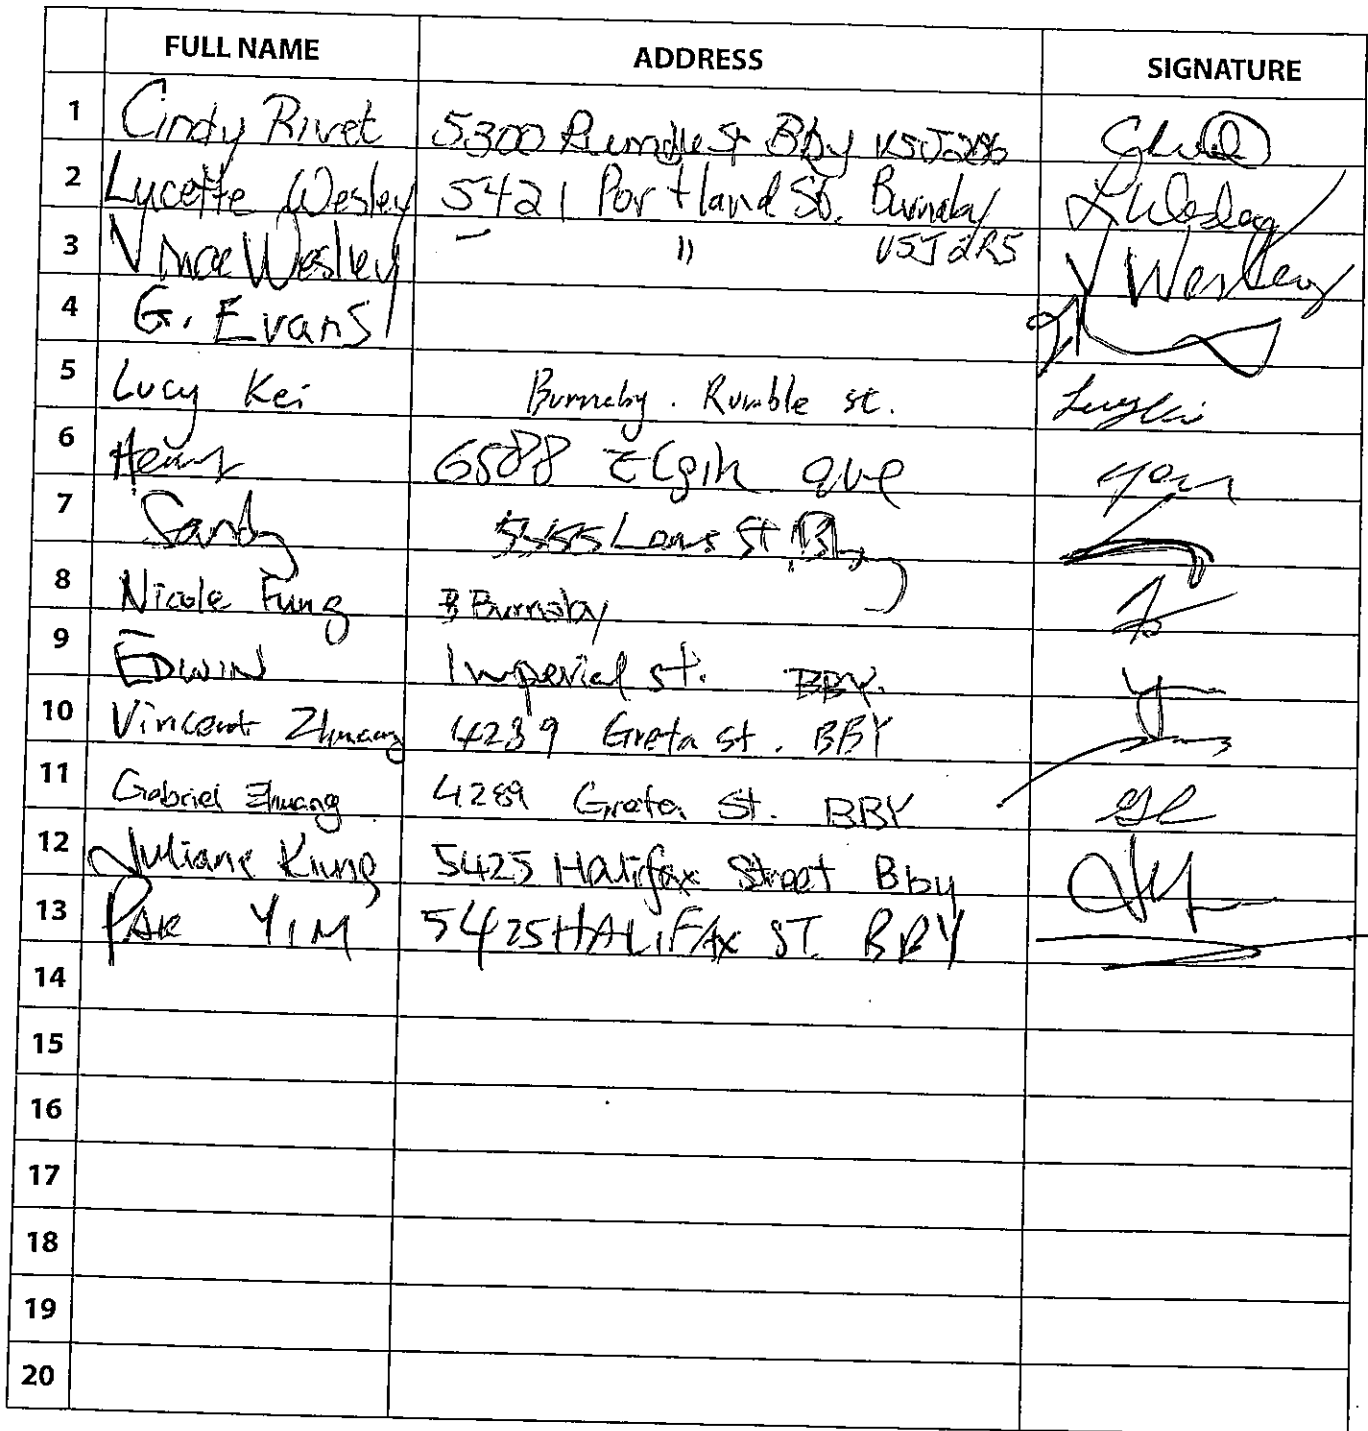 FULL NAME ADDRESS SIGNATURE
1 Cindy Rivet 5300 Rumble St Bby V5J2B6
2 Lucette Wesley 5421 Portland St. Burnaby LWesley
3 Vince Wesley — " V5J2R5 V Wesley
4 G. Evans
5 Lucy Kei Burnaby. Rumble st. Lucy Kei
6 Henry 6588 Elgin ave
7 Sandy St Bby
8 Nicole Fung Burnaby
9 EDWIN Imperial st. BBY.
10 Vincent Zhuang 4289 Greta st. BBY
11 Gabriel Zhuang 4289 Greta St. BBY
12 Juliane Kung 5425 Halifax Street Bby
13 PAK YIM 5425 HALIFAX ST. BBY
14
15
16
17
18
19
20